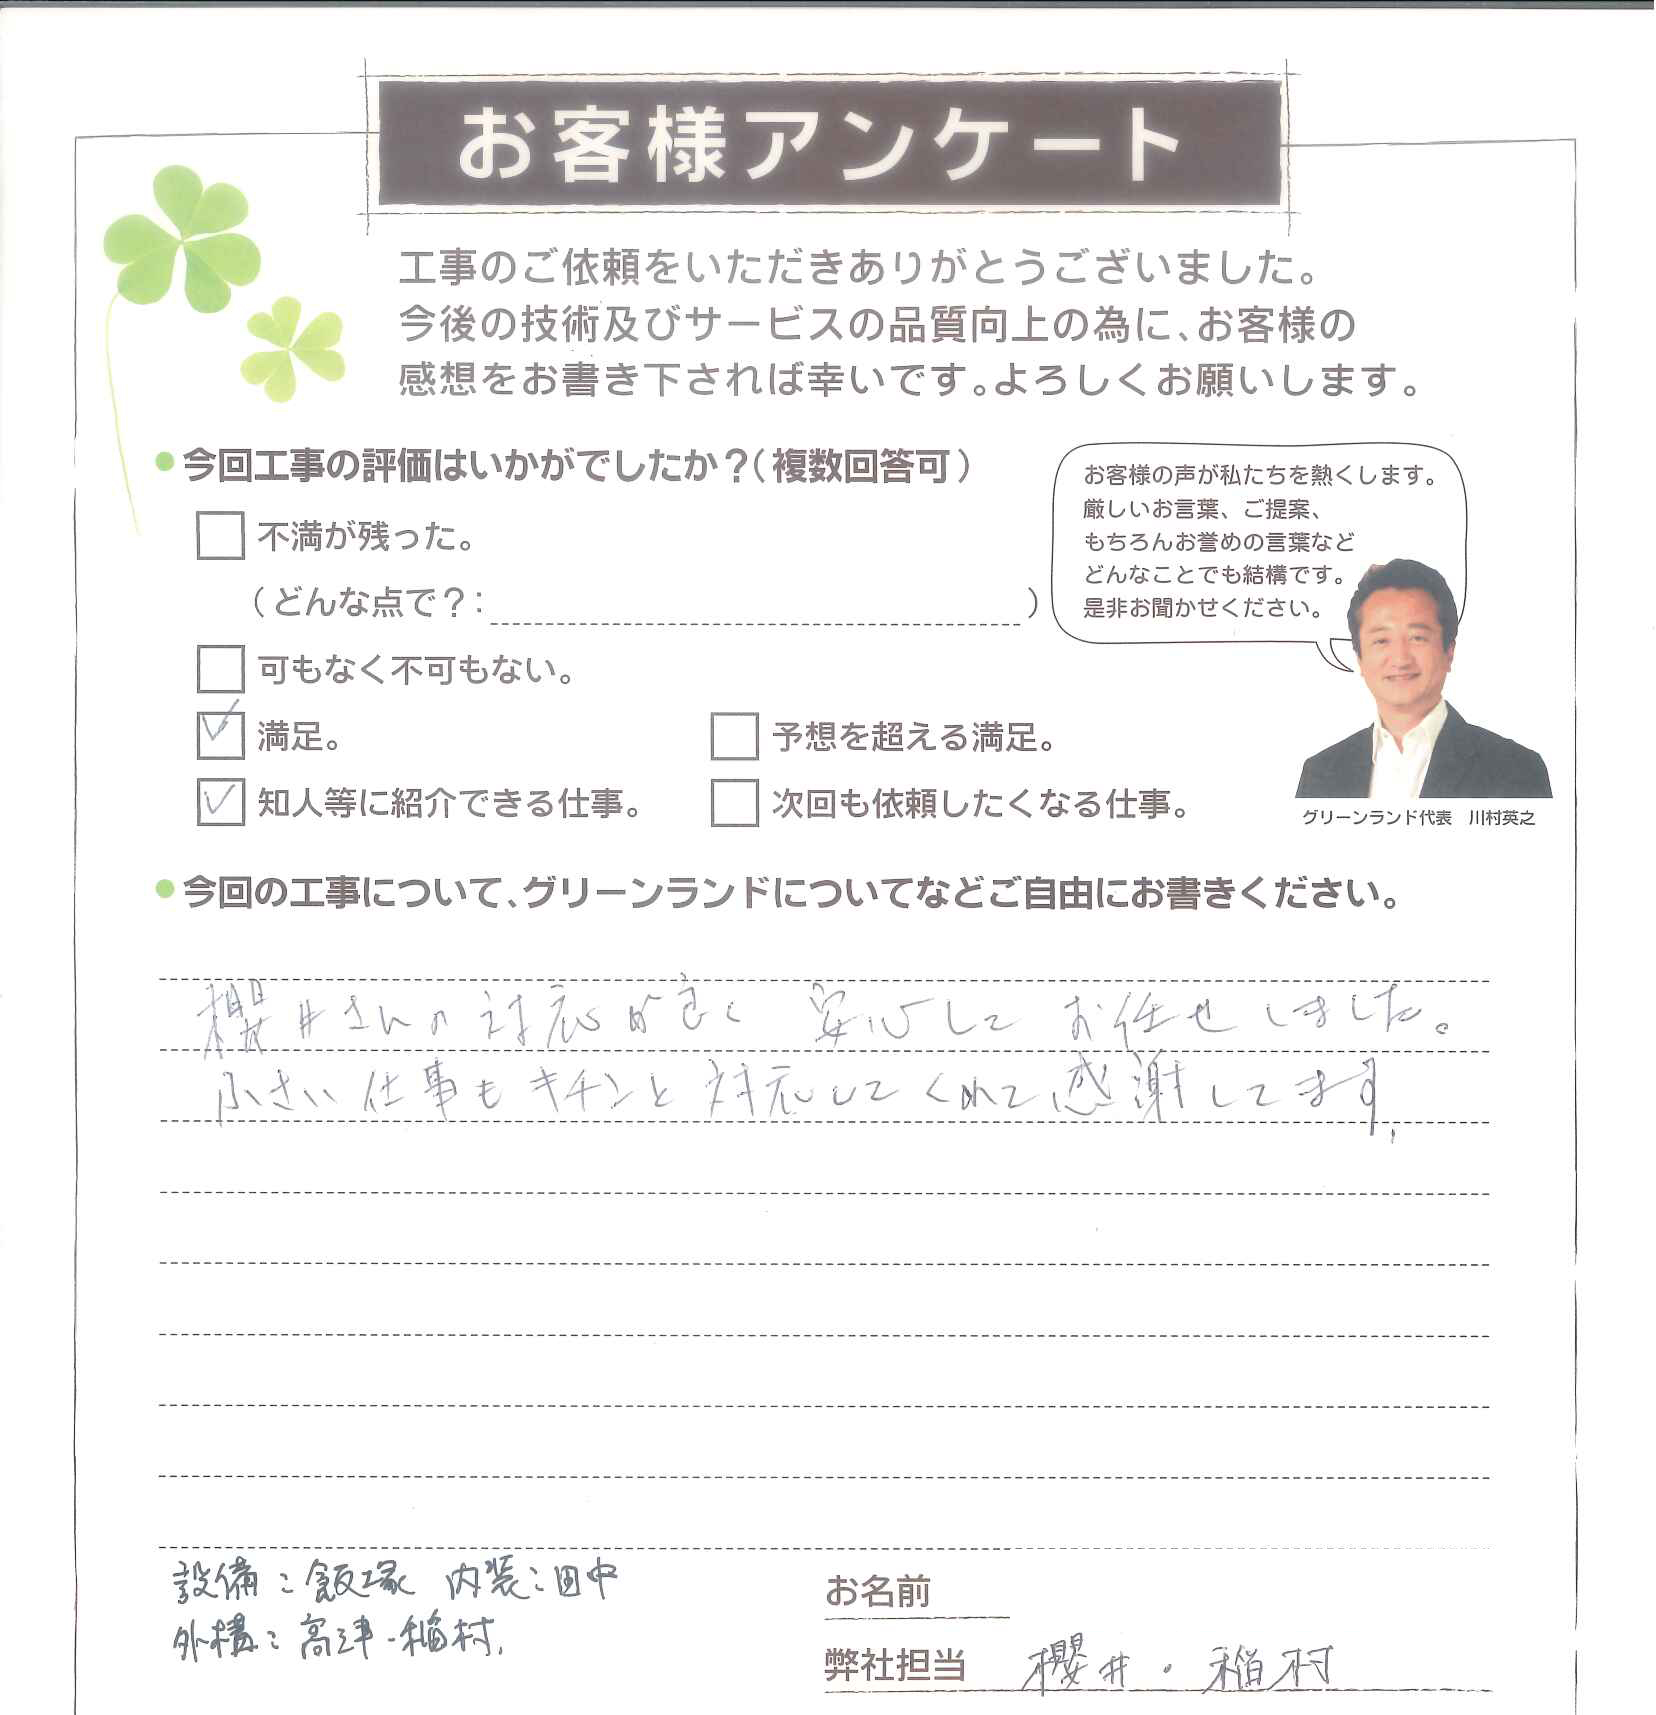 お客様アンケート
工事のご依頼をいただきありがとうございました。
今後の技術及びサービスの品質向上の為に、お客様の
感想をお書き下されば幸いです。よろしくお願いします。
●今回工事の評価はいかがでしたか？(複数回答可)
不満が残った。
(どんな点で？: )
可もなく不可もない。
満足。
予想を超える満足。
知人等に紹介できる仕事。
次回も依頼したくなる仕事。
お客様の声が私たちを熱くします。
厳しいお言葉、ご提案、
もちろんお誉めの言葉など
どんなことでも結構です。
是非お聞かせください。
グリーンランド代表 川村英之
●今回の工事について、グリーンランドについてなどご自由にお書きください。
櫻井さんの対応が良く 安心して お任せしました。
小さい仕事もキチンと対応してくれて感謝してます。
設備:飯塚 内装:田中
外構:高津・稲村.
お名前
弊社担当 櫻井・稲村